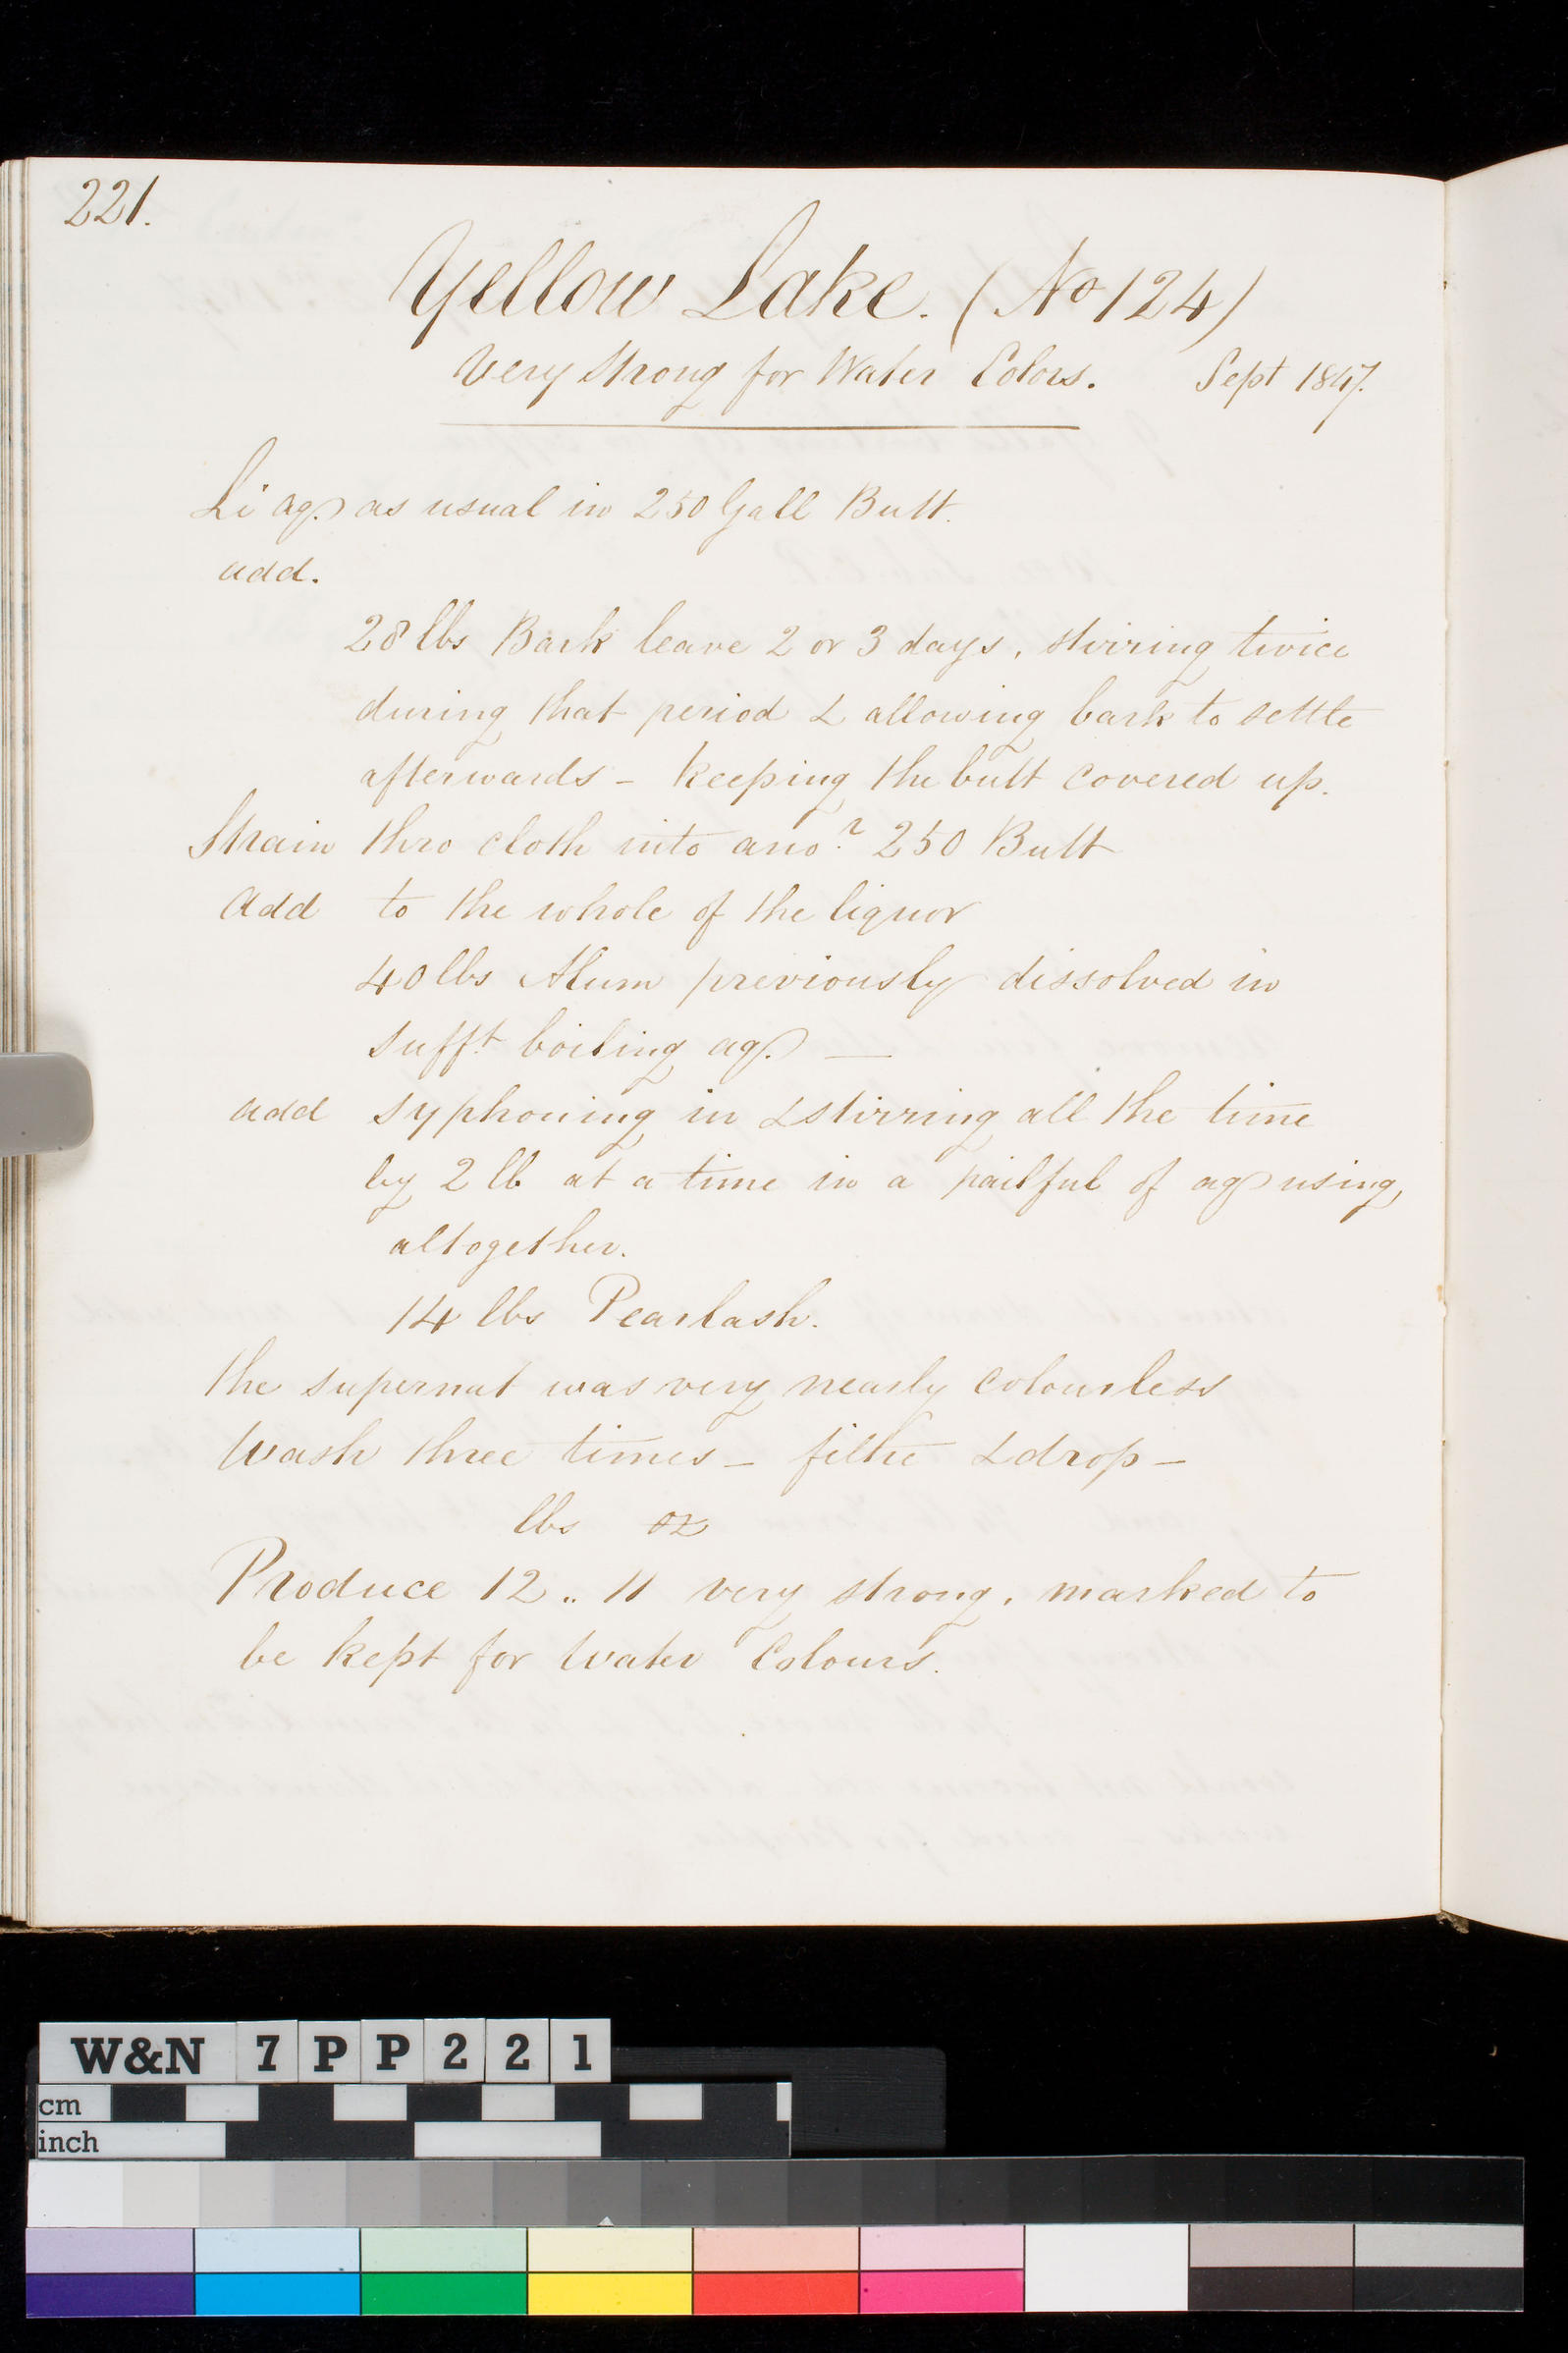 221.
Yellow Lake. (No 124)
Very Strong for Water Colors. Sept 1847.
Li aq. as usual in 250 Gall Butt.
add.
28 lbs Bark leave 2 or 3 days, stirring twice
during that period & allowing bark to settle
afterwards - keeping the butt covered up.
Strain thro cloth into anor 250 Butt
Add to the whole of the liquor
40 lbs Alum previously dissolved in
sufft boiling aq. —
add syphoning in & stirring all the time
by 2 lb at a time in a pailful of aq using,
altogether.
14 lbs Pearlash.
the supernat was very nearly colourless
Wash three times - filtre & drop -
lbs oz
Produce 12 .. 11 very strong, marked to
be kept for Water Colours.
W&N 7PP221
cm
inch